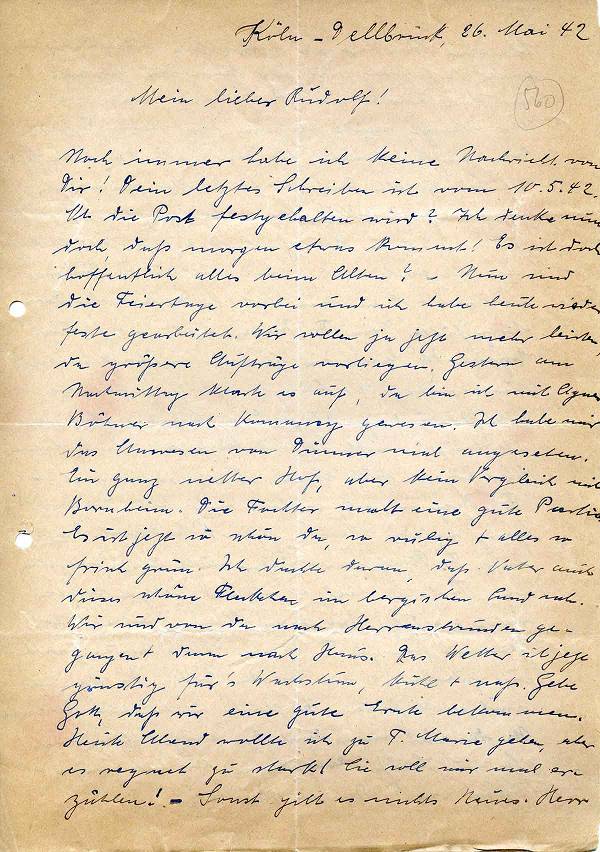 Köln - Dellbrück, 26. Mai 42
560
Mein lieber Rudolf!
Noch immer habe ich keine Nachricht von
Dir! Dein letztes Schreiben ist vom 10.5.42.
Ob die Post festgehalten wird? Ich denke nun
doch, daß morgen etwas kommt! Es ist doch
hoffentlich alles beim Alten? - Nun sind
die Feiertage vorbei und ich habe heute wieder
feste gearbeitet. Wir sollen ja jetzt mehr leisten,
da größere Aufträge vorliegen. Gestern am
Nachmittag klarte es auf, da bin ich mit Agnes
nach gewesen. Ich habe mir
das Anwesen von mal angesehen.
Ein ganz netter Hof, aber kein Vergleich mit
Bornheim. Die Tochter macht eine gute Partie
Es ist jetzt so schön da, so ruhig + alles so
frisch grün. Ich dachte daran, daß Vater auch
dieses schöne Fleckchen im bergischen Land sah.
Wir sind von da nach Herrenstrunden ge-
gangen + dann nach Haus. Das Wetter ist jetzt
günstig für's Wachstum, kühl + naß. Gebe
Gott, daß wir eine gute Ernte bekommen.
Heute Abend wollte ich zu T. Marie gehen, aber
es regnet zu stark! Sie soll mir mal er-
zählen! - Sonst gibt es nichts Neues. Herr